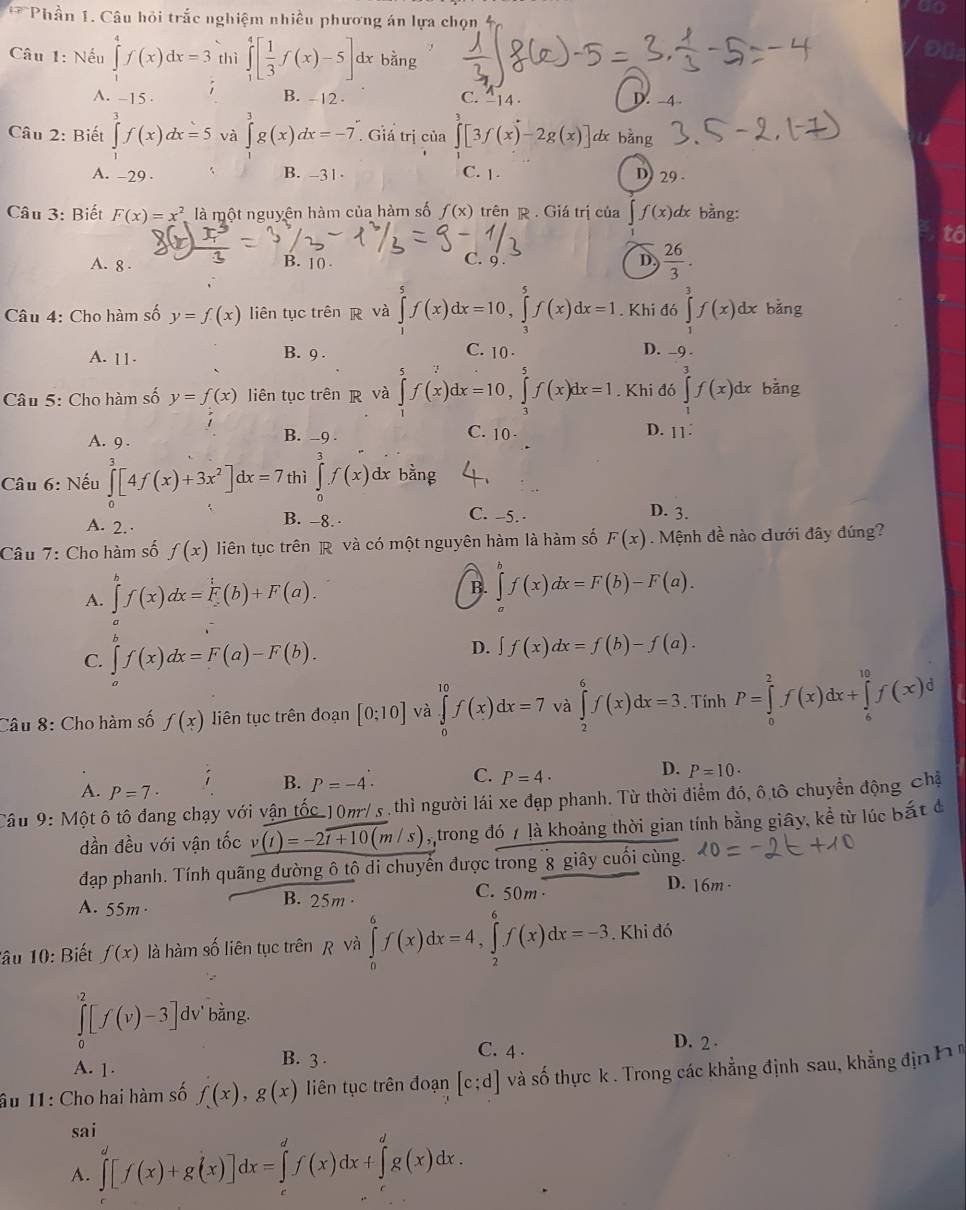 Phần 1. Câu hỏi trắc nghiệm nhiều phương án lựa chọn
Câu 1: Nếu ∫₁⁴ f(x)dx = 3 thì ∫₁⁴ [1/3 f(x) − 5]dx bằng
1/3 ∫ f(x) − 5 = 3 . 1/3 − 5 = −4
A. −15. B. −12. C. −14. D. −4.
Câu 2: Biết ∫₁³ f(x)dx = 5 và ∫₁³ g(x)dx = −7. Giá trị của ∫₁³ [3f(x) − 2g(x)]dx bằng
3.5 − 2.(−7)
A. −29. B. −31. C. 1. D. 29.
Câu 3: Biết F(x) = x² là một nguyên hàm của hàm số f(x) trên R. Giá trị của ∫₁³ f(x)dx bằng:
f(x) x³/3 = 3³/3 − 1³/3 = 9 − 1/3
A. 8. B. 10. C. 9. D. 26/3.
Câu 4: Cho hàm số y = f(x) liên tục trên R và ∫₁⁵ f(x)dx = 10, ∫₃⁵ f(x)dx = 1. Khi đó ∫₁³ f(x)dx bằng
A. 11. B. 9. C. 10. D. −9.
Câu 5: Cho hàm số y = f(x) liên tục trên R và ∫₁⁵ f(x)dx = 10, ∫₃⁵ f(x)dx = 1. Khi đó ∫₁³ f(x)dx bằng
A. 9. B. −9. C. 10. D. 11.
Câu 6: Nếu ∫₀³ [4f(x) + 3x²]dx = 7 thì ∫₀³ f(x)dx bằng 4.
A. 2. B. −8. C. −5. D. 3.
Câu 7: Cho hàm số f(x) liên tục trên R và có một nguyên hàm là hàm số F(x). Mệnh đề nào dưới đây đúng?
A. ∫ₐᵇ f(x)dx = F(b) + F(a). B. ∫ₐᵇ f(x)dx = F(b) − F(a).
C. ∫ₐᵇ f(x)dx = F(a) − F(b). D. ∫ f(x)dx = f(b) − f(a).
Câu 8: Cho hàm số f(x) liên tục trên đoạn [0;10] và ∫₀¹⁰ f(x)dx = 7 và ∫₂⁶ f(x)dx = 3. Tính P = ∫₀² f(x)dx + ∫₆¹⁰ f(x)d
A. P = 7. B. P = −4. C. P = 4. D. P = 10.
Câu 9: Một ô tô đang chạy với vận tốc 10m/s thì người lái xe đạp phanh. Từ thời điểm đó, ô tô chuyển động chậ
dần đều với vận tốc v(t) = −2t + 10(m/s), trong đó t là khoảng thời gian tính bằng giây, kể từ lúc bắt đ
đạp phanh. Tính quãng đường ô tô di chuyển được trong 8 giây cuối cùng. 10 = −2t + 10
A. 55m. B. 25m. C. 50m. D. 16m.
âu 10: Biết f(x) là hàm số liên tục trên R và ∫₀⁶ f(x)dx = 4, ∫₂⁶ f(x)dx = −3. Khi đó
∫₀² [f(v) − 3]dv bằng.
A. 1. B. 3. C. 4. D. 2.
âu 11: Cho hai hàm số f(x), g(x) liên tục trên đoạn [c;d] và số thực k. Trong các khẳng định sau, khẳng định n
sai
A. ∫ᶜᵈ [f(x) + g(x)]dx = ∫ᶜᵈ f(x)dx + ∫ᶜᵈ g(x)dx.